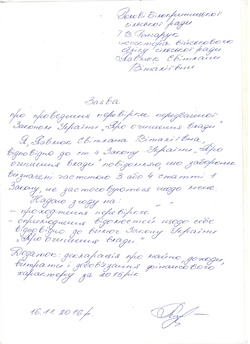 Голові Білокриницької
сільської ради
Т.В. Гончарук
інспектора військового
обліку сільської ради
Павлюк Світлани
Віталіївни
Заява
про проведення перевірки, передбаченої
Законом України „Про очищення влади"
Я, Павлюк Світлана Віталіївна,
відповідно до ст. 4 Закону України „Про
очищення влади" повідомляю, що заборони,
визначені частиною 3 або 4 статті 1
Закону, не застосовуються щодо мене.
Надаю згоду на:
– проходження перевірки
– оприлюднення відомостей щодо себе
відповідно до вимог Закону України
„Про очищення влади".
Додаток: декларація про майно, доходи,
витрати і зобов'язання фінансового
характеру за 2015 рік.
16.11.2016р.